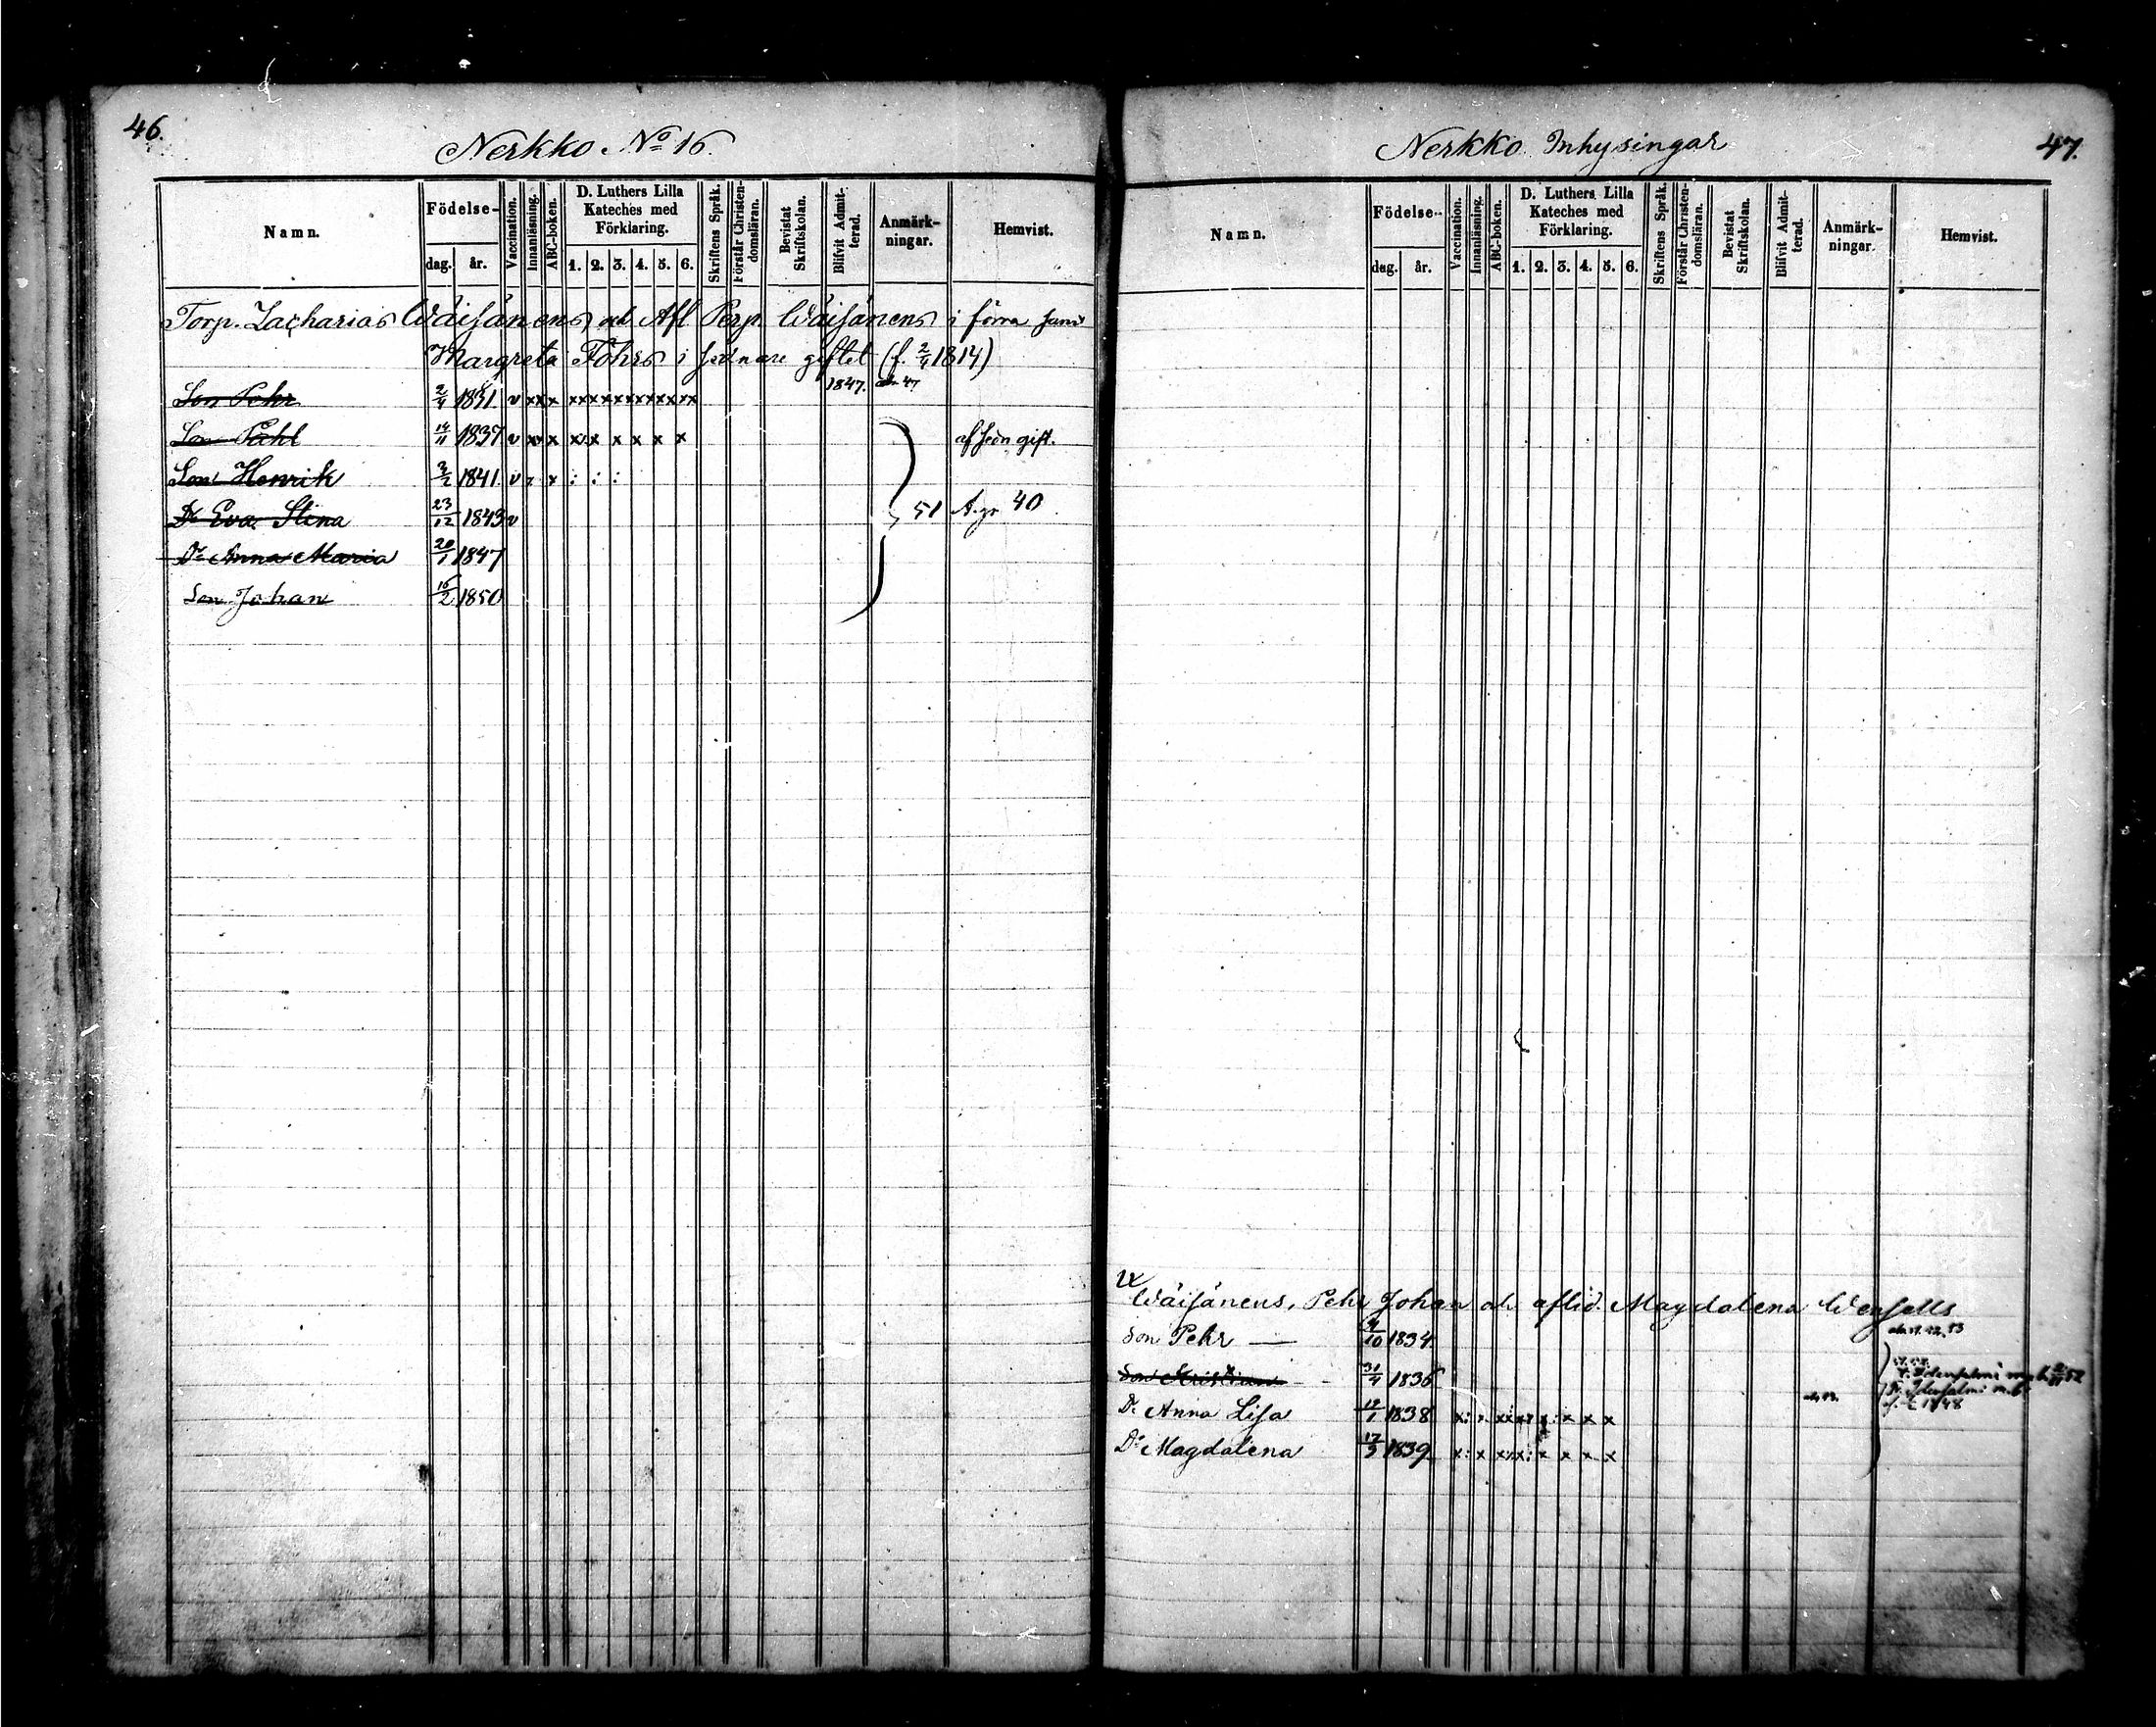 46.
Nerkko № 16.
Namn.
Födelse-
dag.
år.
Vaccination.
Innanläsning.
ABC-boken.
D. Luthers Lilla
Kateches med
Förklaring.
1. 2. 3. 4. 5. 6.
Skriftens Språk.
Förstår Christen-
domsläran.
Bevistat
Skriftskolan.
Blifvit Admit-
terad.
Anmärk-
ningar.
Hemvist.
Torp. Zacharias Wäisänens och Afl. Wäisänens i förra samt
Margreta Föhrs i sednare giftet (f. 2/4 1814)
Son Pehr 2/4 1831. v xx x xx xx xx xx xx xx 1847.
Son Påhl 14/11 1837 v x x x x x x x x af sedn gift.
Son Henrik 2/2 1841. v x x : : :
Dr Eva Stina 23/12 1843 v 51 40
Dr Anna Maria 20/1 1847
Son Johan 16/2 1850
47.
Nerkko Inhysingar
Namn.
Födelse-
dag.
år.
Vaccination.
Innanläsning.
ABC-boken.
D. Luthers Lilla
Kateches med
Förklaring.
1. 2. 3. 4. 5. 6.
Skriftens Språk.
Förstår Christen-
domsläran.
Bevistat
Skriftskolan.
Blifvit Admit-
terad.
Anmärk-
ningar.
Hemvist.
Wäisänens, Pehr Johan och aflid. Magdalena
Son Pehr 1834.
Son Kristian 1836
Dr Anna Lisa 12/1 1838 x: x x x x x x x x
Dr Magdalena 17/3 1839 x: x x x: x x x x